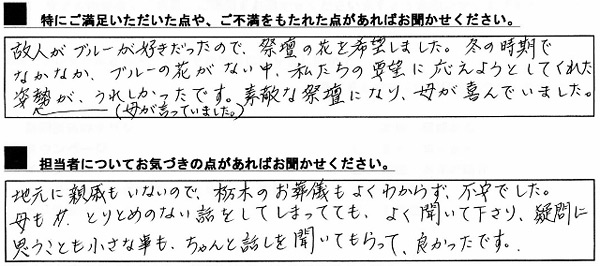 ■ 特にご満足いただいた点や、ご不満をもたれた点があればお聞かせください。
故人がブルーが好きだったので、祭壇の花を希望しました。冬の時期で
なかなか、ブルーの花がない中、私たちの要望に応えようとしてくれた
姿勢が、うれしかったです。素敵な祭壇になり、母が喜んでいました。
(母が言っていました。)
■ 担当者についてお気づきの点があればお聞かせください。
地元に親戚もいないので、栃木のお葬儀もよくわからず、不安でした。
母も、とりとめのない話をしてしまってても、よく聞いて下さり、疑問に
思うことも小さな事も、ちゃんと話しを聞いてもらって、良かったです。